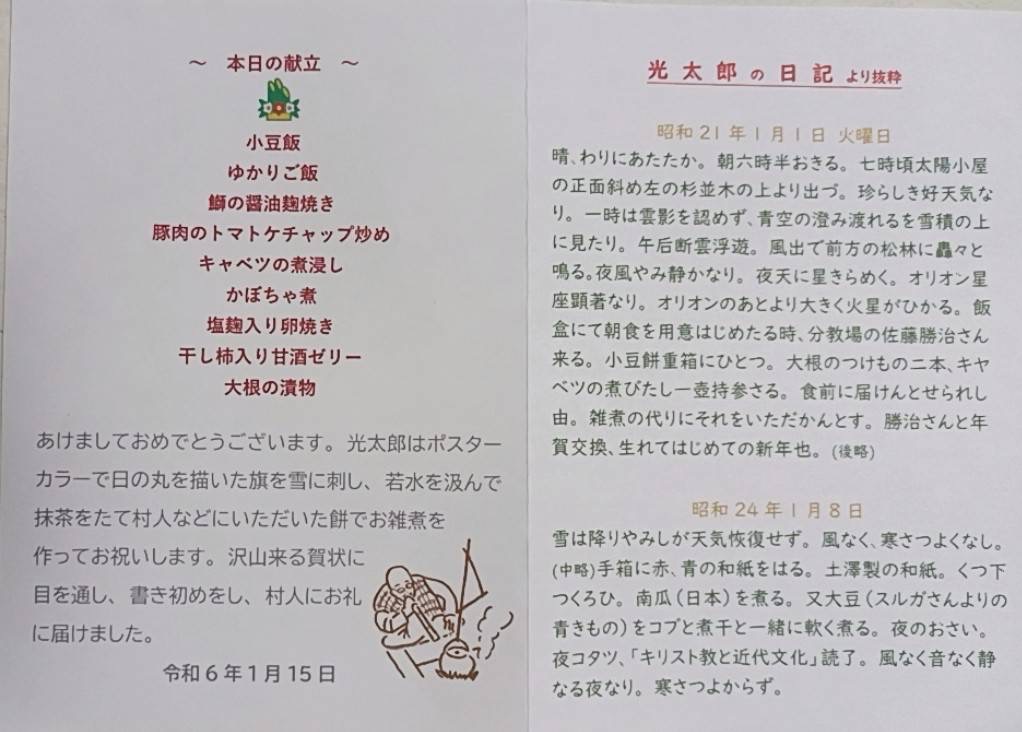 ～ 本日の献立 ～
小豆飯
ゆかりご飯
鰤の醤油麹焼き
豚肉のトマトケチャップ炒め
キャベツの煮浸し
かぼちゃ煮
塩麹入り卵焼き
干し柿入り甘酒ゼリー
大根の漬物
あけましておめでとうございます。光太郎はポスター
カラーで日の丸を描いた旗を雪に刺し、若水を汲んで
抹茶をたて村人などにいただいた餅でお雑煮を
作ってお祝いします。沢山来る賀状に
目を通し、書き初めをし、村人にお礼
に届けました。
令和6年1月15日
光太郎の日記より抜粋
昭和21年1月1日 火曜日
晴、わりにあたたか。朝六時半おきる。七時頃太陽小屋
の正面斜め左の杉並木の上より出づ。珍らしき好天気な
り。一時は雲影を認めず、青空の澄み渡れるを雪積の上
に見たり。午后断雲浮遊。風出で前方の松林に轟々と
鳴る。夜風やみ静かなり。夜天に星きらめく。オリオン星
座顕著なり。オリオンのあとより大きく火星がひかる。飯
盒にて朝食を用意はじめたる時、分教場の佐藤勝治さん
来る。小豆餅重箱にひとつ。大根のつけもの二本、キャ
ベツの煮びたし一壺持参さる。食前に届けんとせられし
由。雑煮の代りにそれをいただかんとす。勝治さんと年
賀交換、生れてはじめての新年也。(後略)
昭和24年1月8日
雪は降りやみしが天気恢復せず。風なく、寒さつよくなし。
(中略)手箱に赤、青の和紙をはる。土澤製の和紙。くつ下
つくろひ。南瓜（日本）を煮る。又大豆（スルガさんよりの
青きもの）をコブと煮干と一緒に軟く煮る。夜のおさい。
夜コタツ、「キリスト教と近代文化」読了。風なく音なく静
なる夜なり。寒さつよからず。